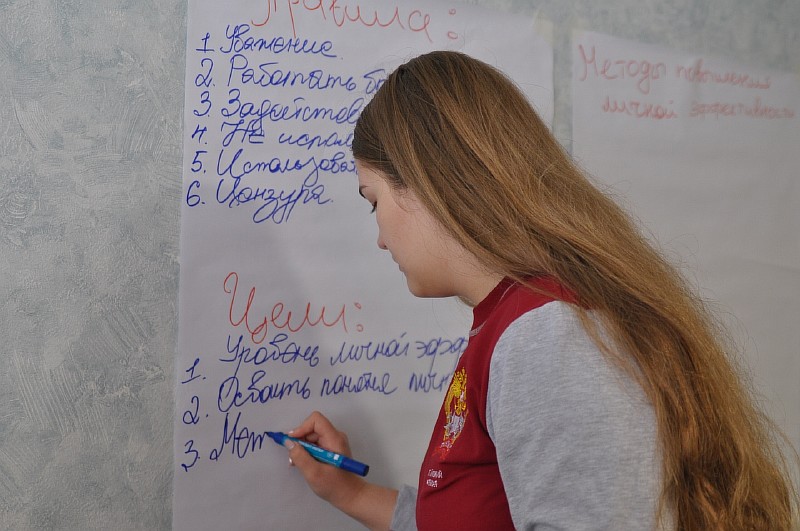 Правила:
1 Уважение.
2. Работать
3. Задейство
4. Не испол
5. Использова
6. Цензура.
Цели:
1. Уровень личной эфф
2. Освоить понятие личн
3. Мет
Методы повышения
личной эффективности